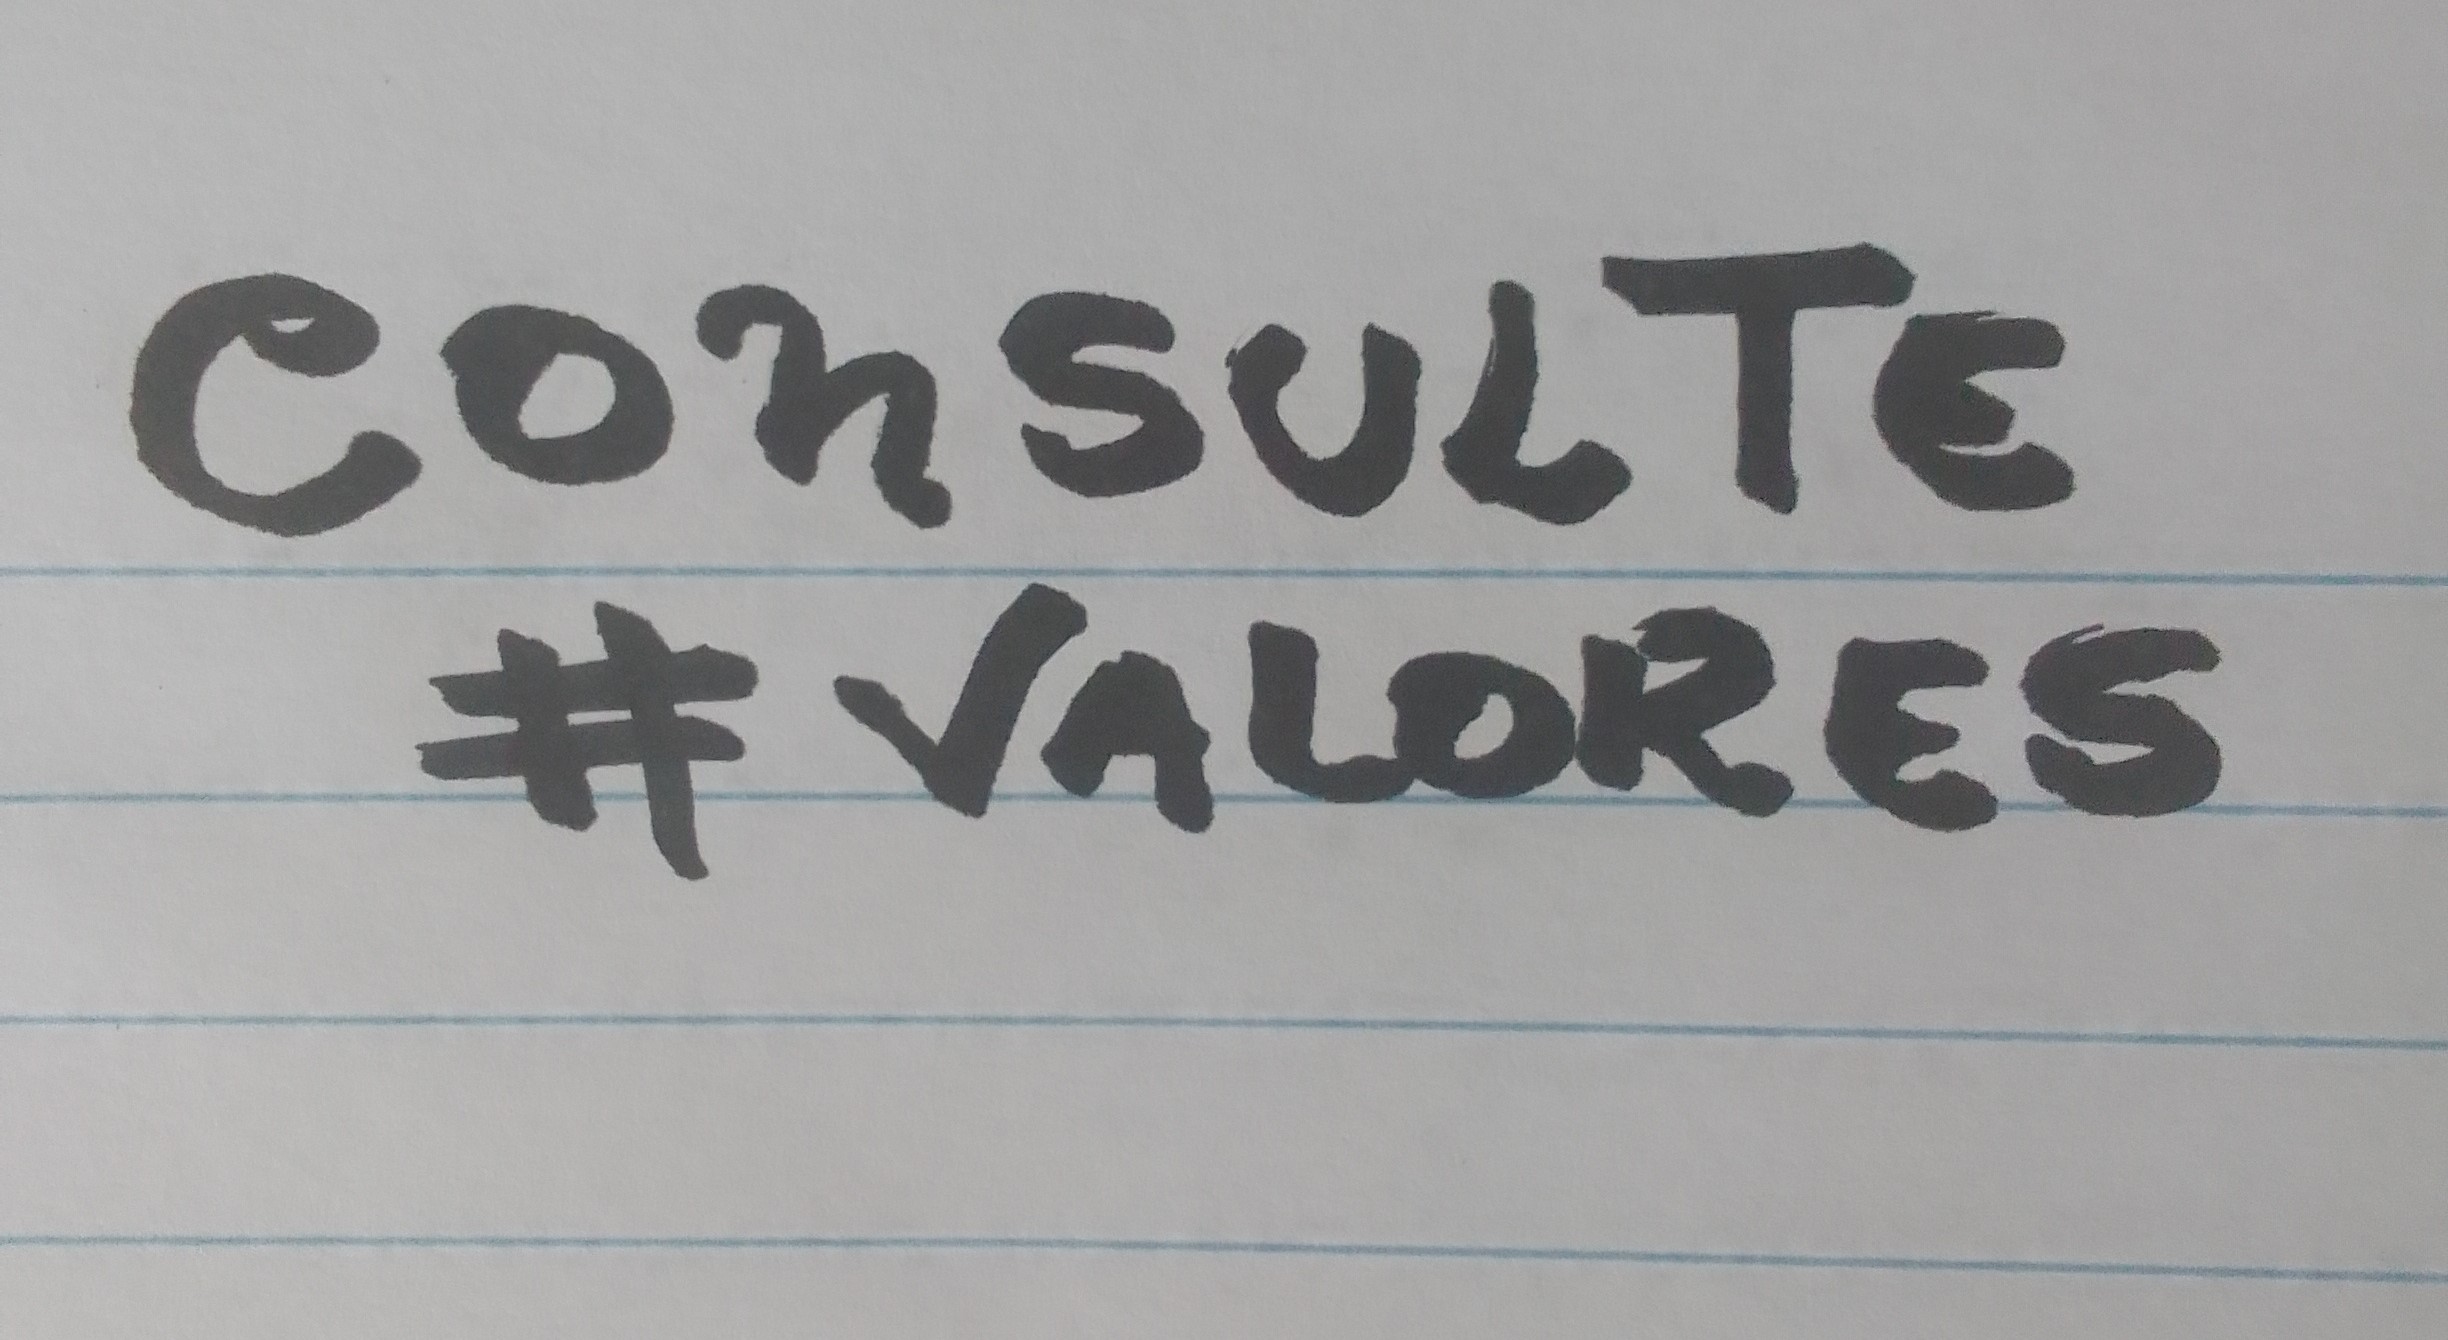 CONSULTE
#VALORES